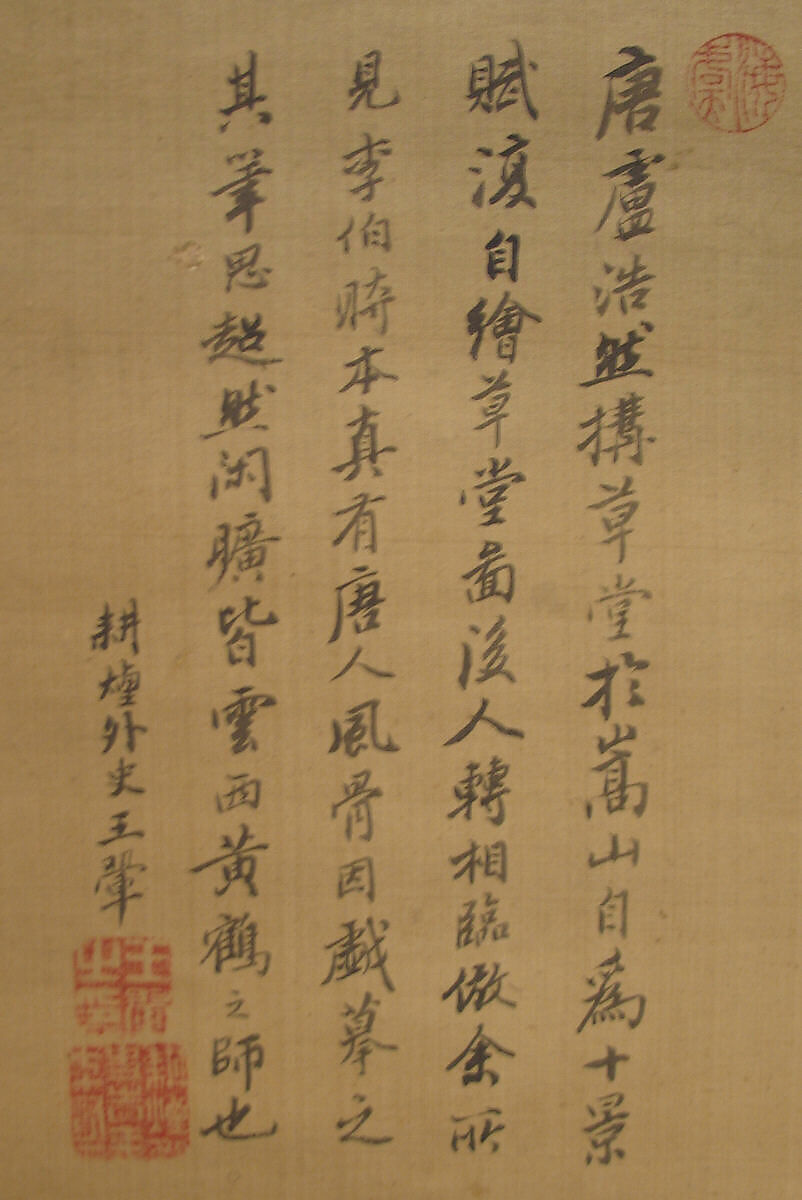 唐盧浩然搆草堂於嵩山自為十景
賦復自繪草堂啚後人轉相臨倣余所
見李伯時本真有唐人風骨因戲摹之
其筆思超然閑曠皆雲西黃鶴之師也
耕煙外史王翬